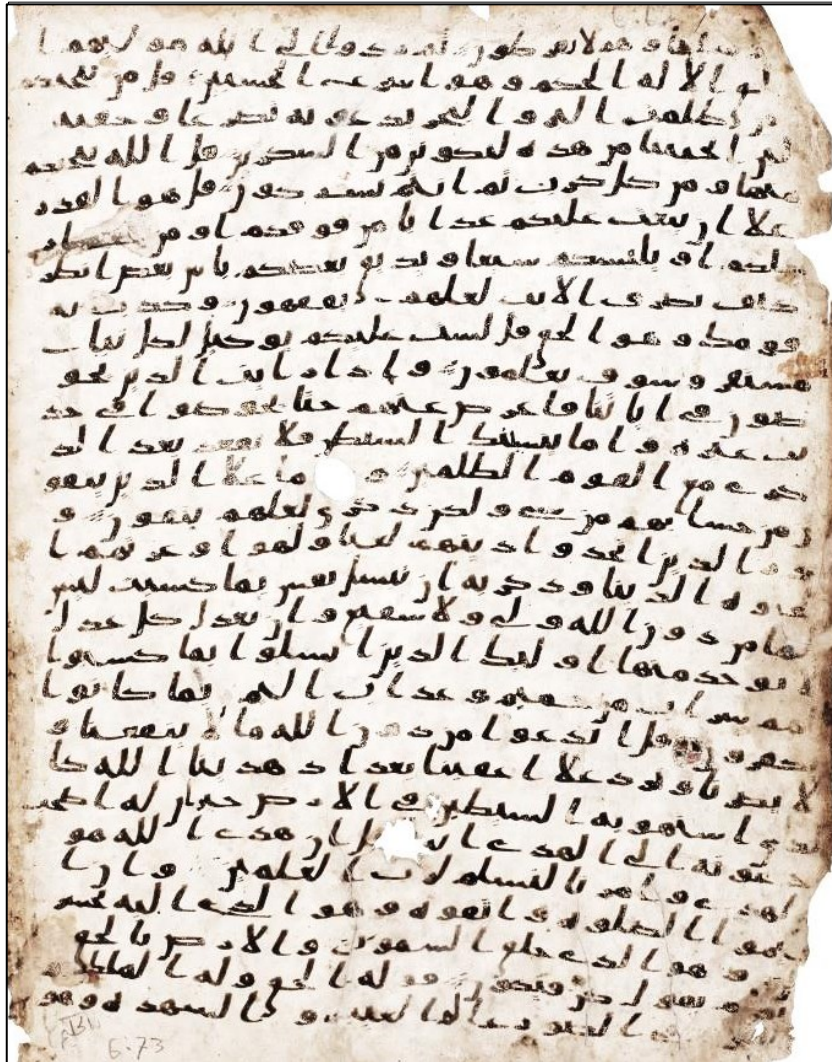 رسلنا وهم لا يفرطون ثم ردوا الى الله موليهم ا
لحق الا له الحكم وهو اسرع الحسبين قل من ينجيكم
من ظلمت البر و البحر تدعونه تضرعا وخفيه
لئن انجيتنا من هذه لنكونن من الشكرين قل الله ينجيكم
منها ومن كل كرب ثم انتم تشركون قل هو القدر
علا ان يبعث عليكم عذابا من فوقكم او من تحت ار
جلكم او يلبسكم شيعا ويذيق بعضكم باس بعض انظر
كيف نصرف الايت لعلهم يفقهون وكذب به
قومك وهو الحق قل لست عليكم بوكيل لكل نبا
مستقر وسوف تعلمون واذا رايت الذين يخو
ضون في ايتنا فاعرض عنهم حتا يخوضوا في حد
يث غيره واما ينسينك الشيطن فلا تقعد بعد الذ
كرى مع القوم الظلمين وما علا الذين يتقو
ن من حسابهم من شي ولكن ذكرى لعلهم يتقون و
ذر الذين اتخذوا دينهم لعبا ولهوا وغرتهم ا
لحيوه الدنيا وذكر به ان تبسل نفس بما كسبت ليس
لها من دون الله ولي ولا شفيع وان تعدل كل عدل
لا يوخذ منها اوليك الذين ابسلوا بما كسبوا
لهم شراب من حميم وعذاب اليم بما كانوا
يكفرون قل اندعوا من دون الله ما لا ينفعنا و
لا يضرنا ونرد علا اعقبنا بعد اذ هدينا الله كا
لذي استهوته الشيطين في الارض حيران له اصحب
يدعونه الى الهدى ائتنا قل ان هدى الله هو
الهدى وامرنا لنسلم لرب العلمين وان ا
قيموا الصلوه واتقوه وهو الذي اليه تحشر
ون وهو الذي خلق السموت والارض بالحق
ويوم يقول كن فيكون قوله الحق وله الملك يو
الصور علم الغيب والشهده وهو
6:73